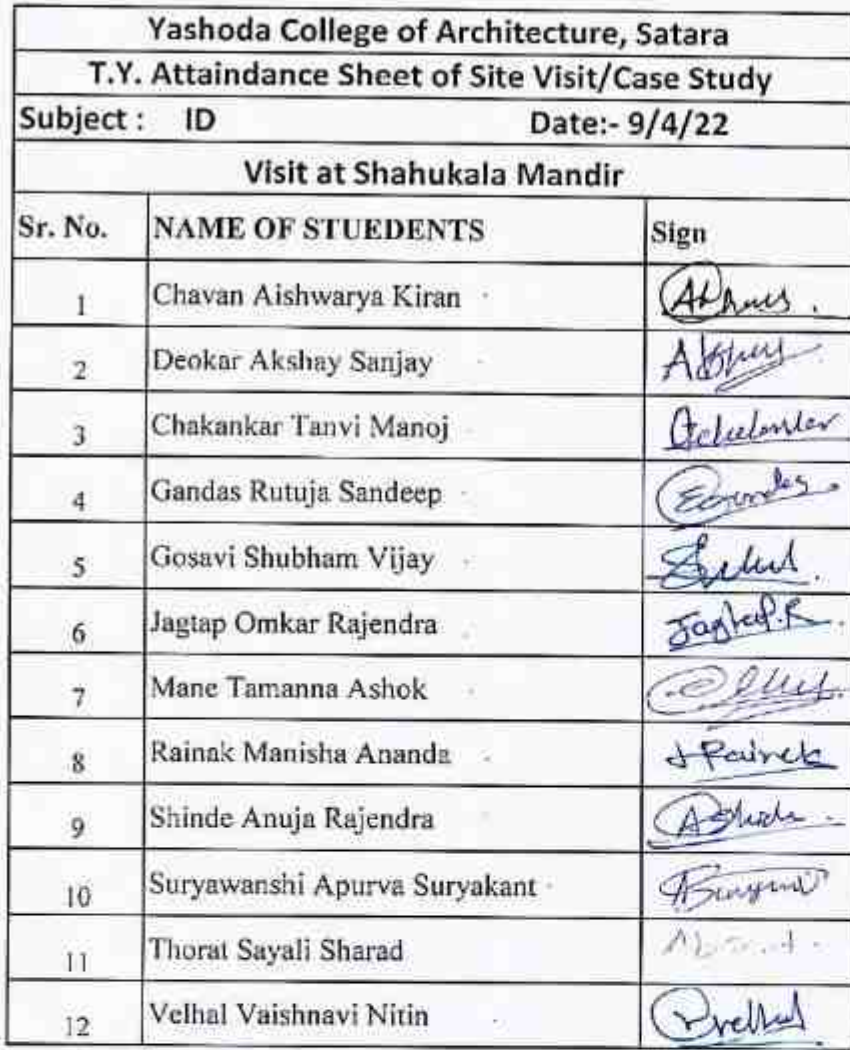 Yashoda College of Architecture, Satara
T.Y. Attaindance Sheet of Site Visit/Case Study
Subject : ID Date:- 9/4/22
Visit at Shahukala Mandir
Sr. No. NAME OF STUEDENTS Sign
1 Chavan Aishwarya Kiran
2 Deokar Akshay Sanjay
3 Chakankar Tanvi Manoj
4 Gandas Rutuja Sandeep
5 Gosavi Shubham Vijay
6 Jagtap Omkar Rajendra Jagtap.R.
7 Mane Tamanna Ashok
8 Rainak Manisha Ananda
9 Shinde Anuja Rajendra
10 Suryawanshi Apurva Suryakant
11 Thorat Sayali Sharad Absent.
12 Velhal Vaishnavi Nitin